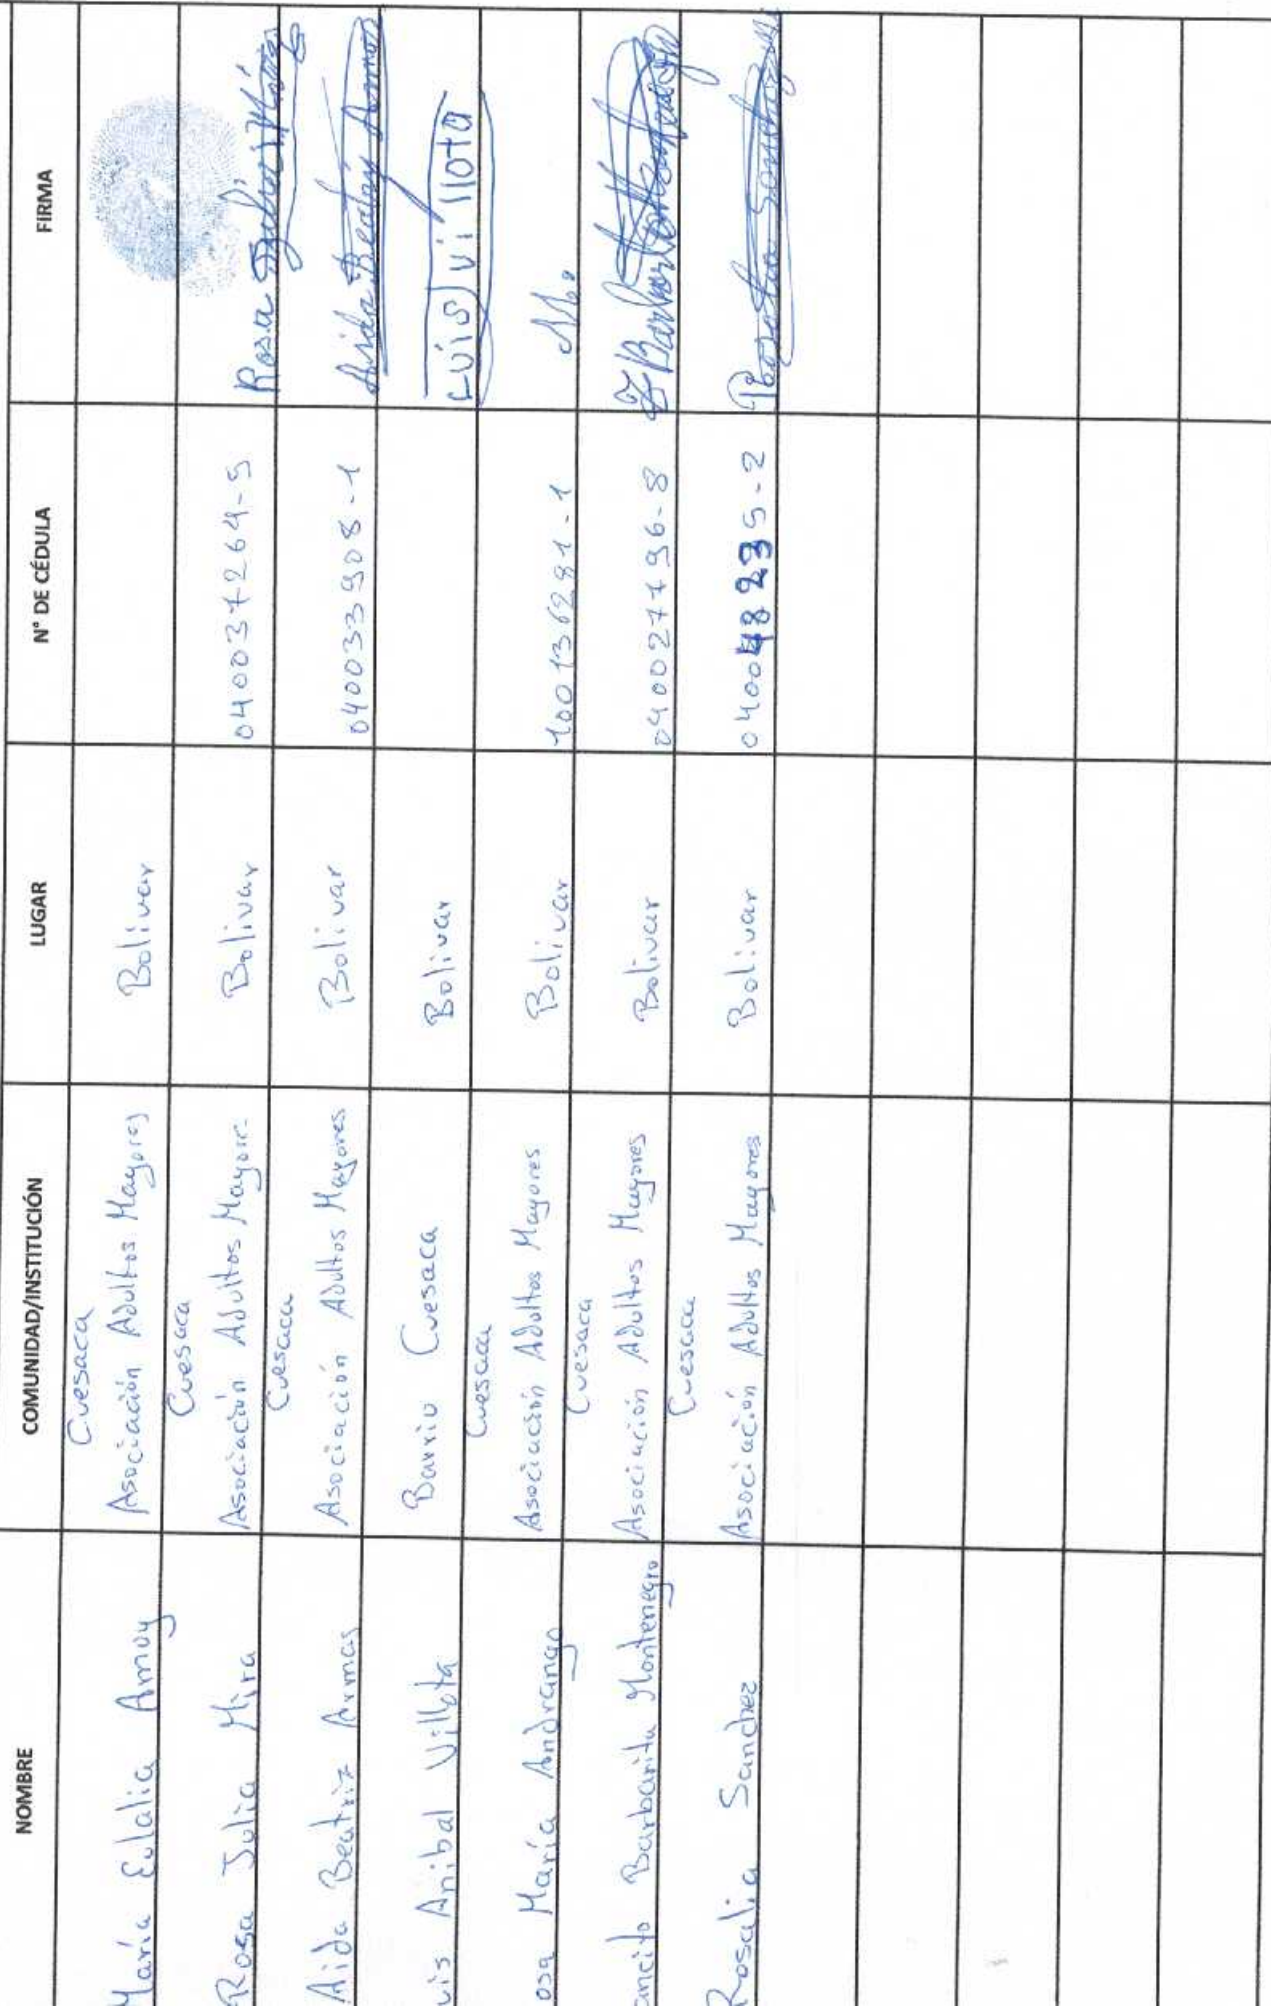 NOMBRE COMUNIDAD/INSTITUCIÓN LUGAR N° DE CÉDULA FIRMA
María Eulalia Amuy Cuesaca Asociación Adultos Mayores Bolivar
Rosa Julia Mira Cuesaca Asociación Adultos Mayore Bolivar Rosa Julia Mira
Aida Beatriz Armas Cuesaca Asociación Adultos Mayores Bolivar 040033908-1 Aida Beatriz Armas
uis Anibal Villota Barrio Cuesaca Bolivar Luis villota
osa María Andrango Cuesaca Asociación Adultos Mayores Bolivar
ancito Barbarita Montenegro Cuesaca Asociación Adultos Mayores Bolivar
Rosalia Sanchez Cuesaca Asociación Adultos Mayores Bolivar Rosalia Sanchez